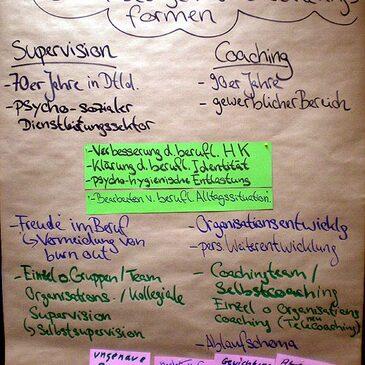 formen
Supervision
Coaching
-70er Jahre in Dtld.
-psycho-sozialer
Dienstleistungssektor
-90er Jahre
-gewerblicher Bereich
-Verbesserung d. berufl. HK
-Klärung d. berufl. Identität
-psycho-hygienische Entlastung
-Bearbeiten v. berufl. Alltagssituation.
-Freude im Beruf
↳Vermeidung von
burn out
-Einzel o Gruppen/Team
Organisations-/Kollegiale
Supervision
↳Selbstsupervision
-Organisationsentwicklg
-pers. Weiterentwicklung
-Coachingteam/
Selbstcoaching
Einzel o Organisations
coaching (neu Telecoaching)
-Ablaufschema
ungenaue